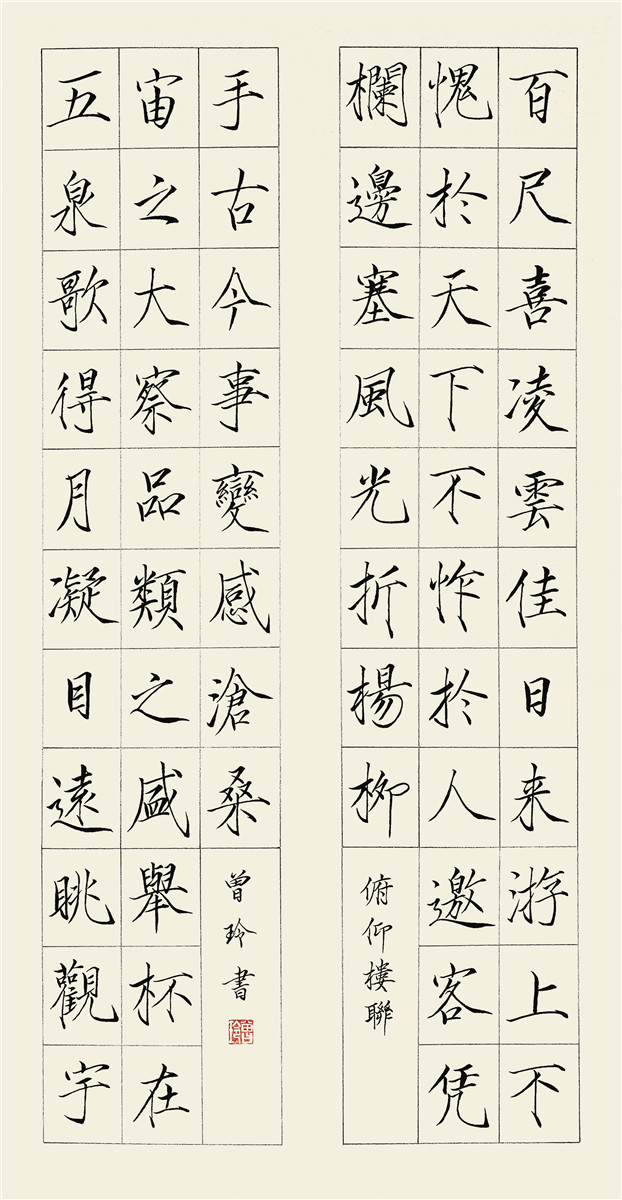 百尺喜凌雲佳日来游上不
愧於天下不怍於人邀客凭
欄邊塞風光折楊柳
俯仰樓聯
五泉歌得月凝目遠眺觀宇
宙之大察品類之盛舉杯在
手古今事變感滄桑
曾玲書
曾玲